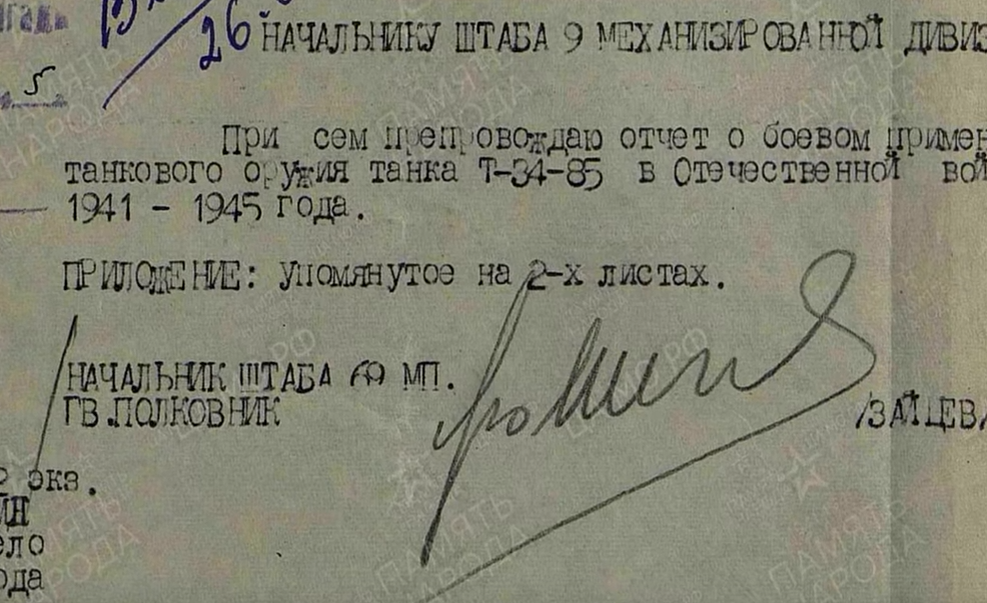 26
НАЧАЛЬНИКУ ШТАБА 9 МЕХАНИЗИРОВАННОЙ ДИВИЗ
5
При сем препровождаю отчет о боевом примен
танкового оружия танка Т-34-85 в Отечественной вой
1941 - 1945 года.
ПРИЛОЖЕНИЕ: упомянутое на 2-х листах.
НАЧАЛЬНИК ШТАБА 69 МП.
ГВ.ПОЛКОВНИК
/ЗАЙЦЕВ/
экз.
ИН
ело
ода
ПАМЯТЬ НАРОДА